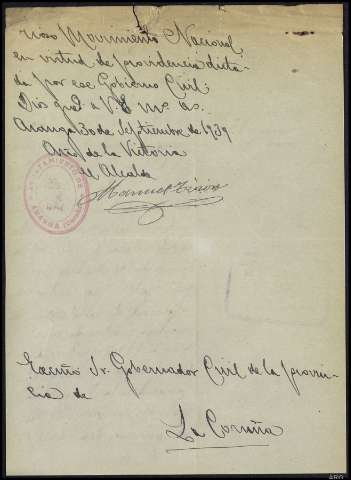 rioso Movimiento Nacional
en virtud de providencia dicta-
da por ese Gobierno Civil.
Dios gue. a V.E. ms. as.
Aranga 30 de Septiembre de 1939
Año de la Victoria
el Alcalde
Manuel
AYUNTAMIENTO DE
ARANGA (Coruña)
Excmo Sr. Gobernador Civil de la provin-
cia de
La Coruña